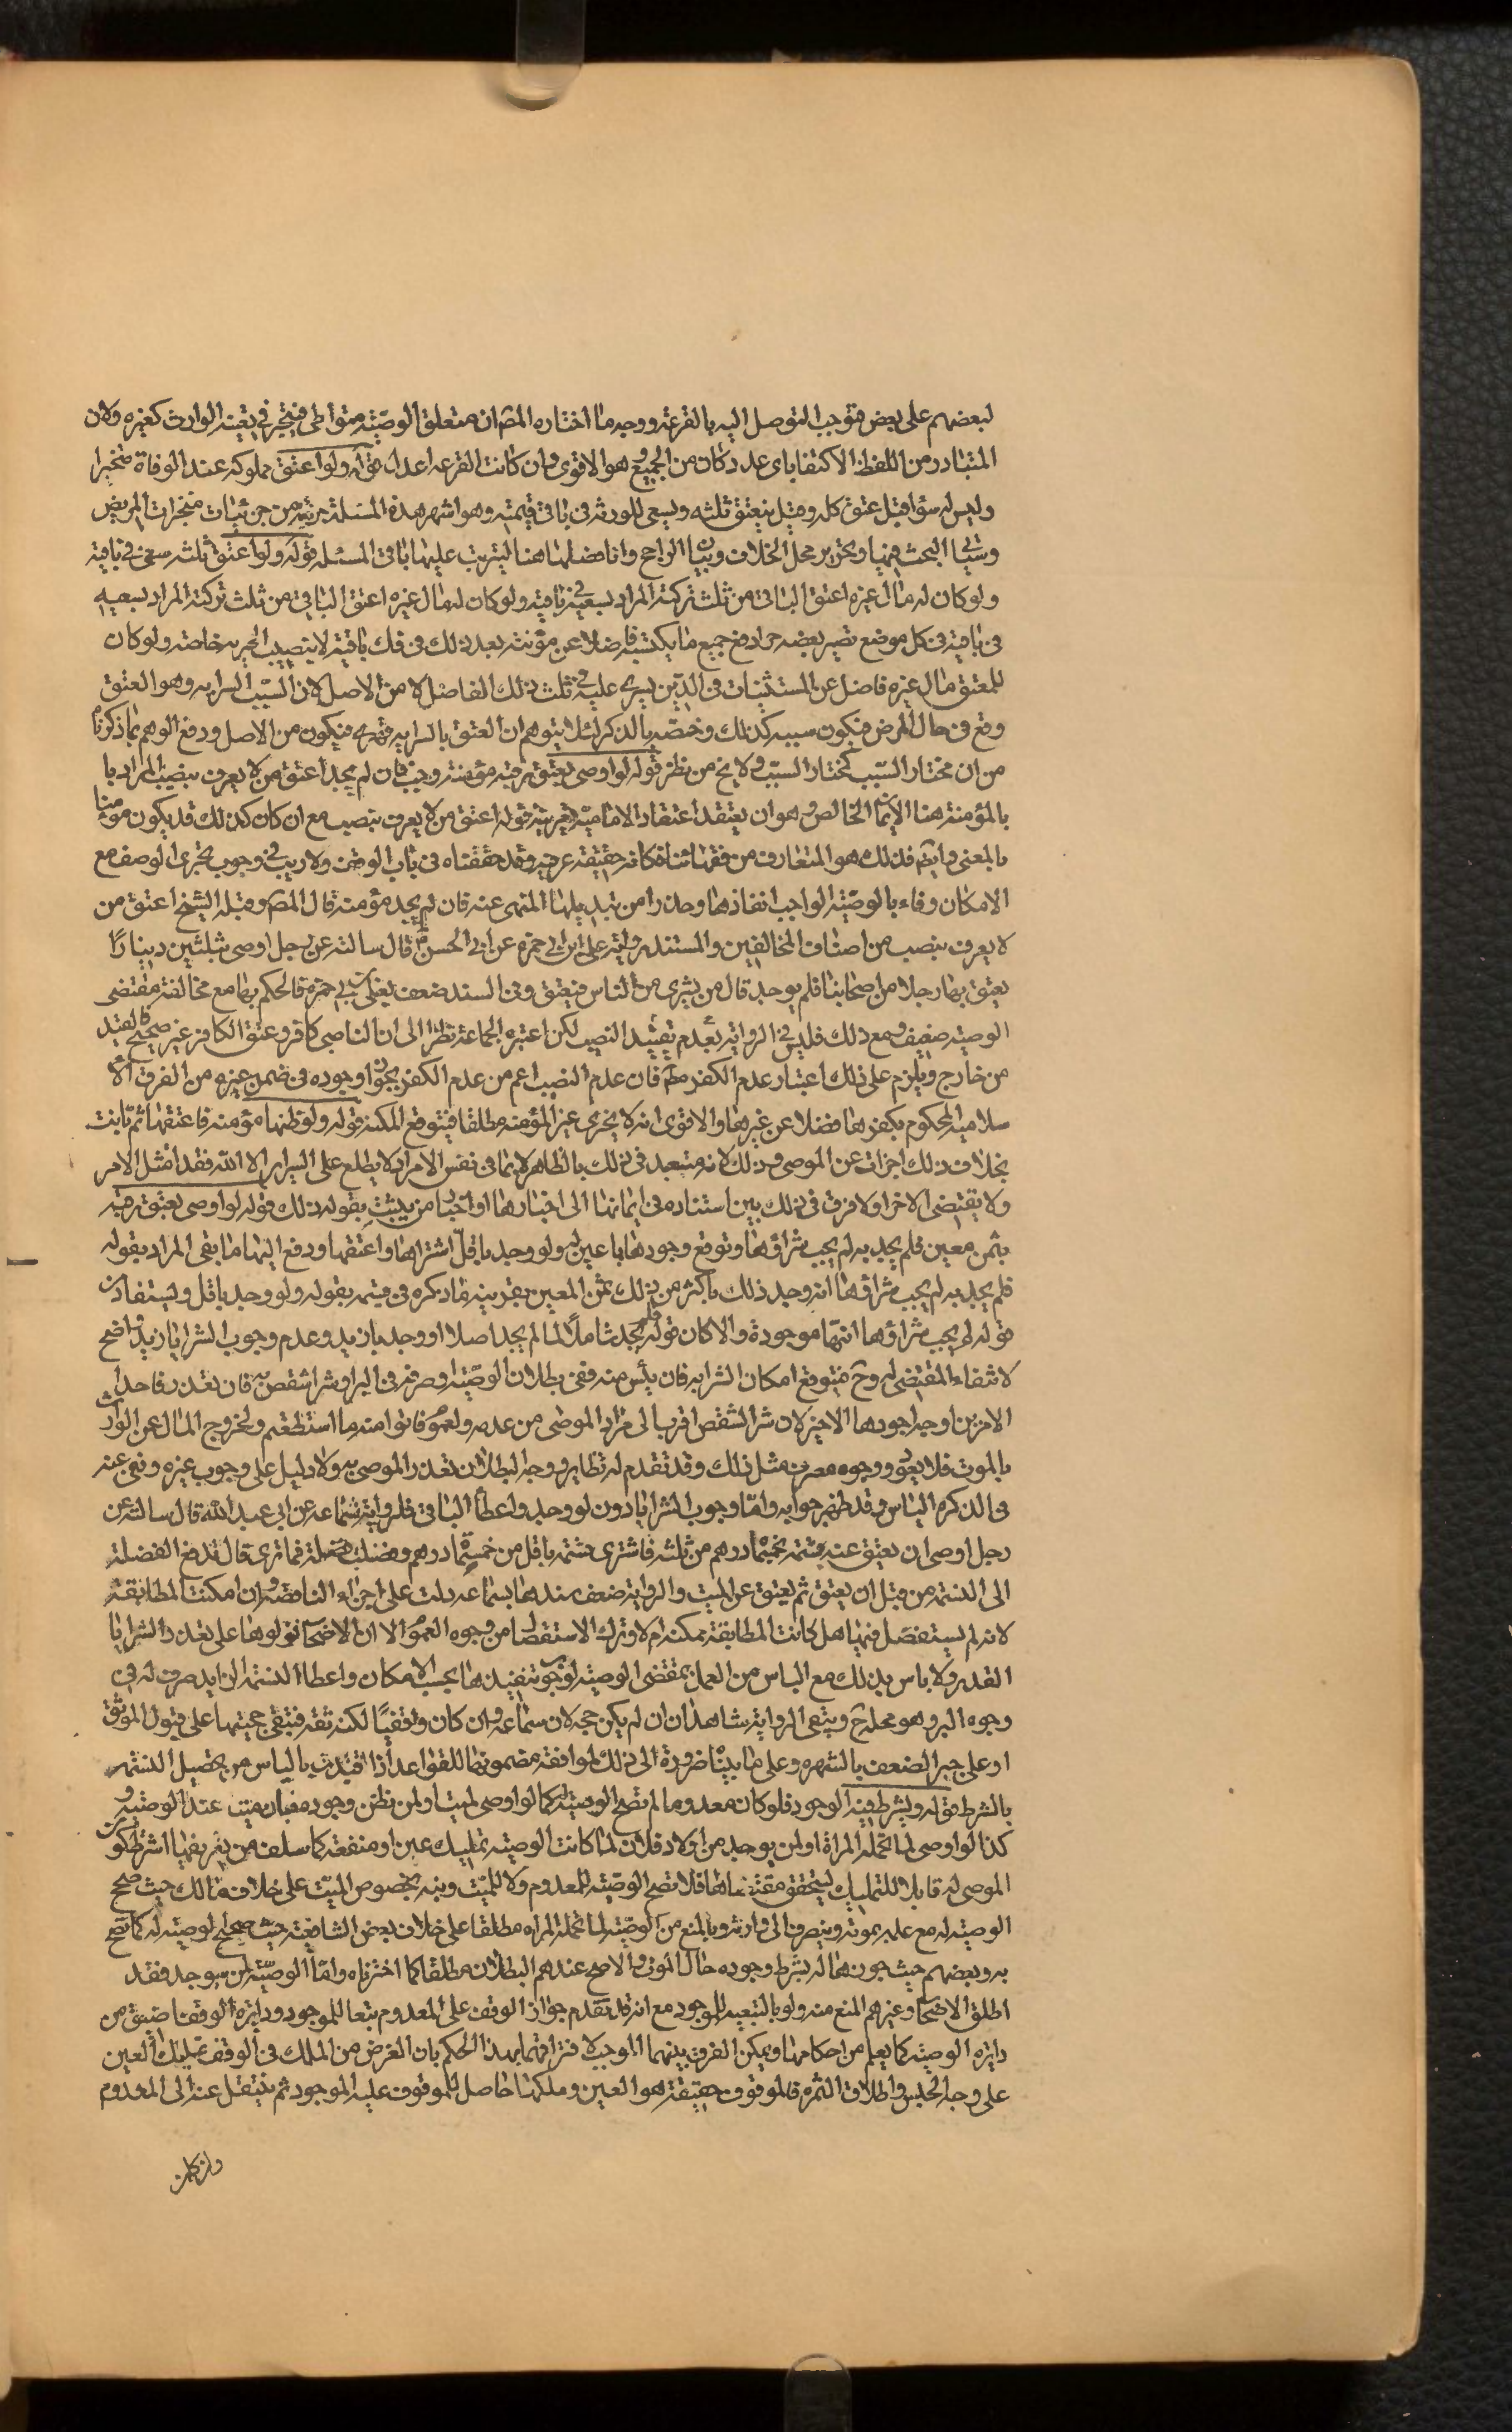 لبعضهم على بعض فتوجب التوصل اليه بالقرعة ووجه ما اختاره المصّ ان متعلق الوصيّة متواطى فيتخير في تعيينه الوارث كغيره ولان
المتبادر من اللفظ الاكتفا باى عدد كان من الجميع وهو الاقوى وان كانت القرعه اعدل قوله ولو اعتق مملوكه عند الوفاة منجزا
وليس له سواه قيل عتق كله وقيل ينعتق ثلثه ويسعى للورثه فى باقى قيمته وهو اشهر هذه المسئلة جزئية من جزئيات منجزات المريض
وسياتى البحث فيها وتحرير محل الخلاف وبيان الراجح وانما فصلها هنا ليترتب عليها باقى المسئله قوله ولو اعتق ثلثه سعى فى باقيه
ولو كان له مال غيره اعتق الباقى من ثلث تركته المراد بسعيه فى باقيه ولو كان له مال غيره اعتق الباقى من ثلث تركته المراد بسعيه
فى باقيه فى كل موضع تصير بعضه حرا دفع جميع ما يكتسبه فاضلا عن مؤنته بعد ذلك فى فك باقيه لا بنصيب الحريه خاصة ولو كان
للمعتق مال غيره فاضل عن المستثنيات فى الدين يسرى عليه فى ثلث ذلك الفاضل لا من الاصل لان السبب السرايه وهو العتق
وقع فى حال المرض فيكون سببه كذلك وخصّه بالذكر لئلا يتوهم ان العتق بالسرايه قهرى فيكون من الاصل ودفع الوهم بما ذكرناه
من ان مختار السّبب كمختار المسبّب ولا يخ من نظر قوله لو اوصى بعتق رقبه مؤمنة وجب فان لم يجد اعتق من لا يعرف بنصب المراد با
بالمؤمنة هنا الايمان الخالص وهو ان يعتقد اعتقاد الاماميّه بقرينة قوله اعتق من لا يعرف بنصب مع ان كان كذلك قد يكون مومنا
بالمعنى وايضًا فذلك هو المتعارف من فقهائنا فكانه حقيقة عرفيه وقد حققناه فى باب الوقف ولا ريب فى وجوب تحرى الوصف مع
الامكان وفاء بالوصيّة الواجب انفاذها وحذرا من تبديلها المنهى عنه فان لم يجد مؤمنه قال المصّ وقبله الشيخ اعتق من
لا يعرف بنصب من اصناف المخالفين والمستند رواية على ابن ابى حمزه عن ابى الحسن قال سالته عن رجل اوصى بثلثين دينارًا
يعتق بها رجلا من اصحابنا فلم يوجد قال من يشرى من الناس فيعتق وفى السند ضعف بعلى بن ابى حمزه فالحكم بها مع مخالفته مقتضى
الوصيّه ضعيف ومع ذلك فليس فى الرواية بعدم تقييد النصب لكن اعتبره الجماعة نظرا الى ان الناصبى كافر وعتق الكافر غير صحيح فالقيد
من خارج ويلزم على ذلك اعتبار عدم الكفر مطّ فان عدم النصب اعم من عدم الكفر بجواز وجوده فى ضمن غيره من الفرق الا
سلاميه المحكوم بكفرها فضلا عن غيرها والاقوى انه لا يجزى غير المؤمنه مطلقا فيتوقع المكنه قوله ولو ظنها مؤمنه فاعتقها ثم بانت
بخلاف ذلك اجزات عن الموصى وذلك لانه متعبد فى ذلك بالظاهر لا بما فى نفس الامر اذ لا يطلع على السراير الا الله فقد امتثل الامر
ولا يقتضى الاجزا ولا فرق فى ذلك بين استناده فى ايمانها الى اخبارها او اخبار من يثبت بقوله ذلك قوله لو اوصى بعتق رقبه
بثمن معين فلم يجد به لم يجب شراؤها وتوقع وجودها بما عين له ولو وجد باقلّ اشتراها واعتقها ودفع اليها ما بقى المراد بقوله
فلم يجد به لم يجب شراؤها انه وجد ذلك باكثر من ذلك الثمن المعين بقرينة ما ذكره فى قيسمه بقوله ولو وجد باقل ويستفاد من
قوله لم يجب شراؤها انها موجودة والا كان قوله لم يجد شاملاً لما لم يجد اصلا او وجد بازيد وعدم وجوب الشرا بازيد واضح
لانتفاء المقتضى له وح فيتوقع امكان الشرا به فان يئس منه ففى بطلان الوصيّة او صرفه فى البر او شرا شقص به فان تعذر فاحد
الامرين اوجه اجودها الاخير لان شرا الشقص اقرب الى مراد الموصى من عدمه ولعموم فاتوا منه ما استطعتم ولخروج المال عن الوارث
بالموت فلا يعود ووجوه مصرف مثل ذلك وقد تقدم له نظاير ووجه البطلان تعذر الموصى به ولا دليل على وجوب غيره ونبى عنه
فى التذكره الياس وقد ظهر جوابه وامّا وجوب الشرا بادون لو وجد واعطا الباقى فلرواية سماعه عن ابى عبد الله قال سالته عن
رجل اوصى ان يعتق عنه نسمة بخمسمائة درهم من ثلثه فاشترى نسمة باقل من خمسمائة درهم وفضلت فضلة فما ترى قال تدفع الفضلة
الى النسمة من قبل ان يعتق ثم يعتق عن الميت والرواية ضعف سندها بسماعه دلت على اجزاء الناقصة وان امكنت المطابقة
لانه لم يستفصل فيها هل كانت المطابقة ممكنه ام لا وترك الاستفصال من وجوه العموم الا ان الاصحاب نزلوها على تعذر الشرا با
القدر ولا باس بذلك مع الياس من العمل بمقتضى الوصيه لوجوب تنفيذها بحسب الامكان واعطا النسمة الزايد صرف له فى
وجوه البر وهو محله ح ويبقى الرواية شاهدا ان لم يكن حجه لان سماعه وان كان واقفيّا لكنه ثقة فتبقى حجيتها على قبول الموثق
او على جبر الضعف بالشهره وعلى ما بيناه ضرورة الى ذلك لموافقة مضمونها للقواعد اذا قيدت بالياس من تحصيل النسمه
بالشرط قوله ويشترط فيه الوجود فلو كان معدوما لم تصح الوصيّة له كما لو اوصى لميت او لمن يظن وجوده فبان ميتا عند الوصيّة و
كذا لو اوصى لما تحمله المراة او لمن يوجد من اولاد فلان لما كانت الوصيه تمليك عين او منفعة كما سلف من تعريفها اشترط كون
الموصى له قابلا للتمليك ليتحقق مقتضاها فلا تصح الوصيّة للمعدوم ولا للميّت ونبه بخصوص الميّت على خلاف مالك حيث صحح
الوصيّه له مع علمه بموته وينصرف الى وارثه وبالمنع من الوصيّة لما تحمله المراه مطلقا على خلاف بعض الشافعية حيث صحح الوصيّه له كما تصح
به وبعضهم حيث جوزها له بشرط وجوده حال الموت والاصح عندهم البطلان مطلقا كما اخترناه وامّا الوصيّة لمن سيوجد فقد
اطلق الاصحاب وغيرهم المنع منه ولو بالتبعيه للموجود مع انه قد تقدم جواز الوقف على المعدوم تبعا للموجود ودايرة الوقف اضيق من
دايره الوصيّه كما يعلم من احكامها ويمكن الفرق بينهما الموجب لافتراقهما بهذا الحكم بان الغرض من الملك فى الوقف تمليك العين
على وجه الحبس واطلاق الثمره فالموقوف حقيقة هو العين وملكها حاصل للموقوف عليه الموجود ثم ينتقل عنه الى المعدوم